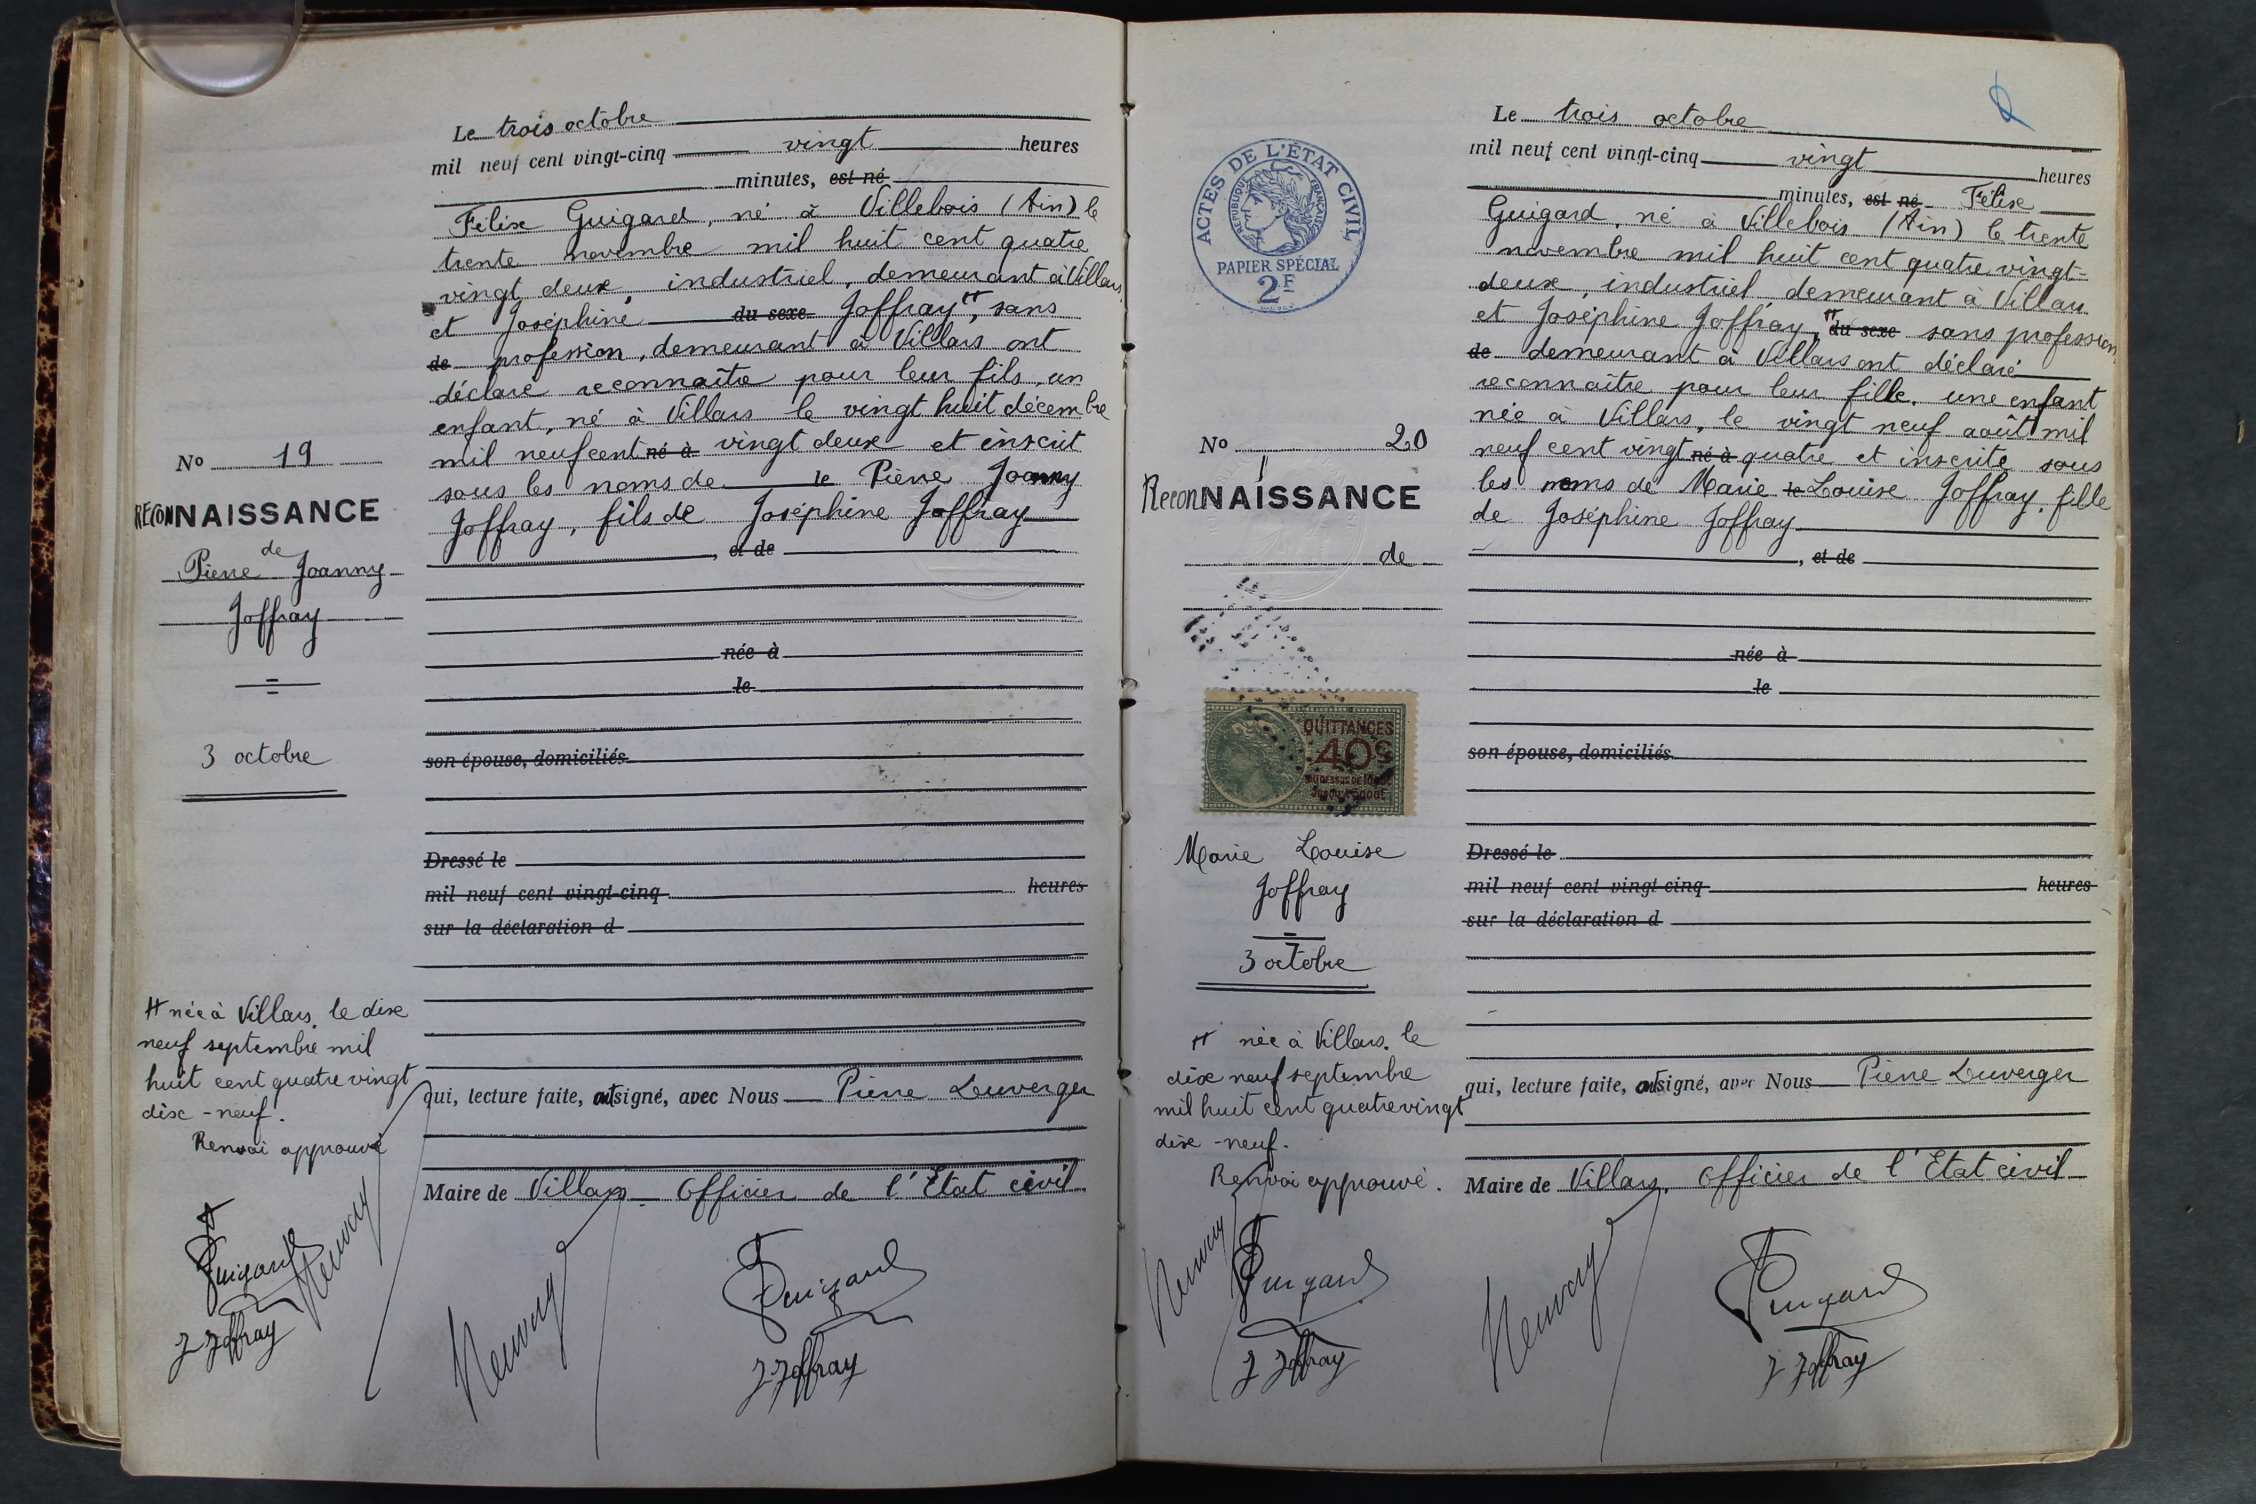 Le trois octobre
mil neuf cent vingt-cinq vingt heures
minutes, est né
Félix Guigard, né à Villebois (Ain) le
trente novembre mil huit cent quatre
vingt deux, industriel, demeurant à Villars,
et Joséphine du sexe Joffray H, sans
de profession, demeurant à Villars ont
déclaré reconnaître pour leur fils, un
enfant, né à Villars le vingt huit décembre
mil neuf cent né à vingt deux et inscrit
sous les noms de le Pierre Joanny
Joffray, fils de Joséphine Joffray
, et de
née à
le
son épouse, domiciliés
Dressé le
mil neuf cent vingt-cinq heures
sur la déclaration d
qui, lecture faite, ont signé, avec Nous Pierre Duverger
Maire de Villars Officier de l'Etat civil
No 19
RECONNAISSANCE
de
Pierre Joanny
Joffray
3 octobre
H née à Villars, le dix
neuf septembre mil
huit cent quatre vingt
dix-neuf.
Renvoi approuvé
Guigard
J Joffray
Guigard
J Joffray
Le trois octobre
mil neuf cent vingt-cinq vingt heures
minutes, est né Félix
Guigard, né à Villebois (Ain) le trente
novembre mil huit cent quatre vingt-
deux, industriel, demeurant à Villars
et Joséphine Joffray, H du sexe sans profession,
de demeurant à Villars ont déclaré
reconnaître pour leur fille, une enfant
née à Villars, le vingt neuf août mil
neuf cent vingt né à quatre et inscrite sous
les noms de Marie le Louise Joffray, fille
de Joséphine Joffray
, et de
née à
le
son épouse, domiciliés
Dressé le
mil neuf cent vingt-cinq heures
sur la déclaration d
qui, lecture faite, ont signé, avec Nous Pierre Duverger
Maire de Villars, Officier de l'Etat civil
ACTES DE L'ÉTAT CIVIL
RÉPUBLIQUE FRANÇAISE
PAPIER SPÉCIAL
2F
No 20
ReconNAISSANCE
de
QUITTANCES
40c
Marie Louise
Joffray
3 octobre
H née à Villars, le
dix neuf septembre
mil huit cent quatre vingt
dix-neuf.
Renvoi approuvé.
Guigard
J Joffray
Guigard
J Joffray